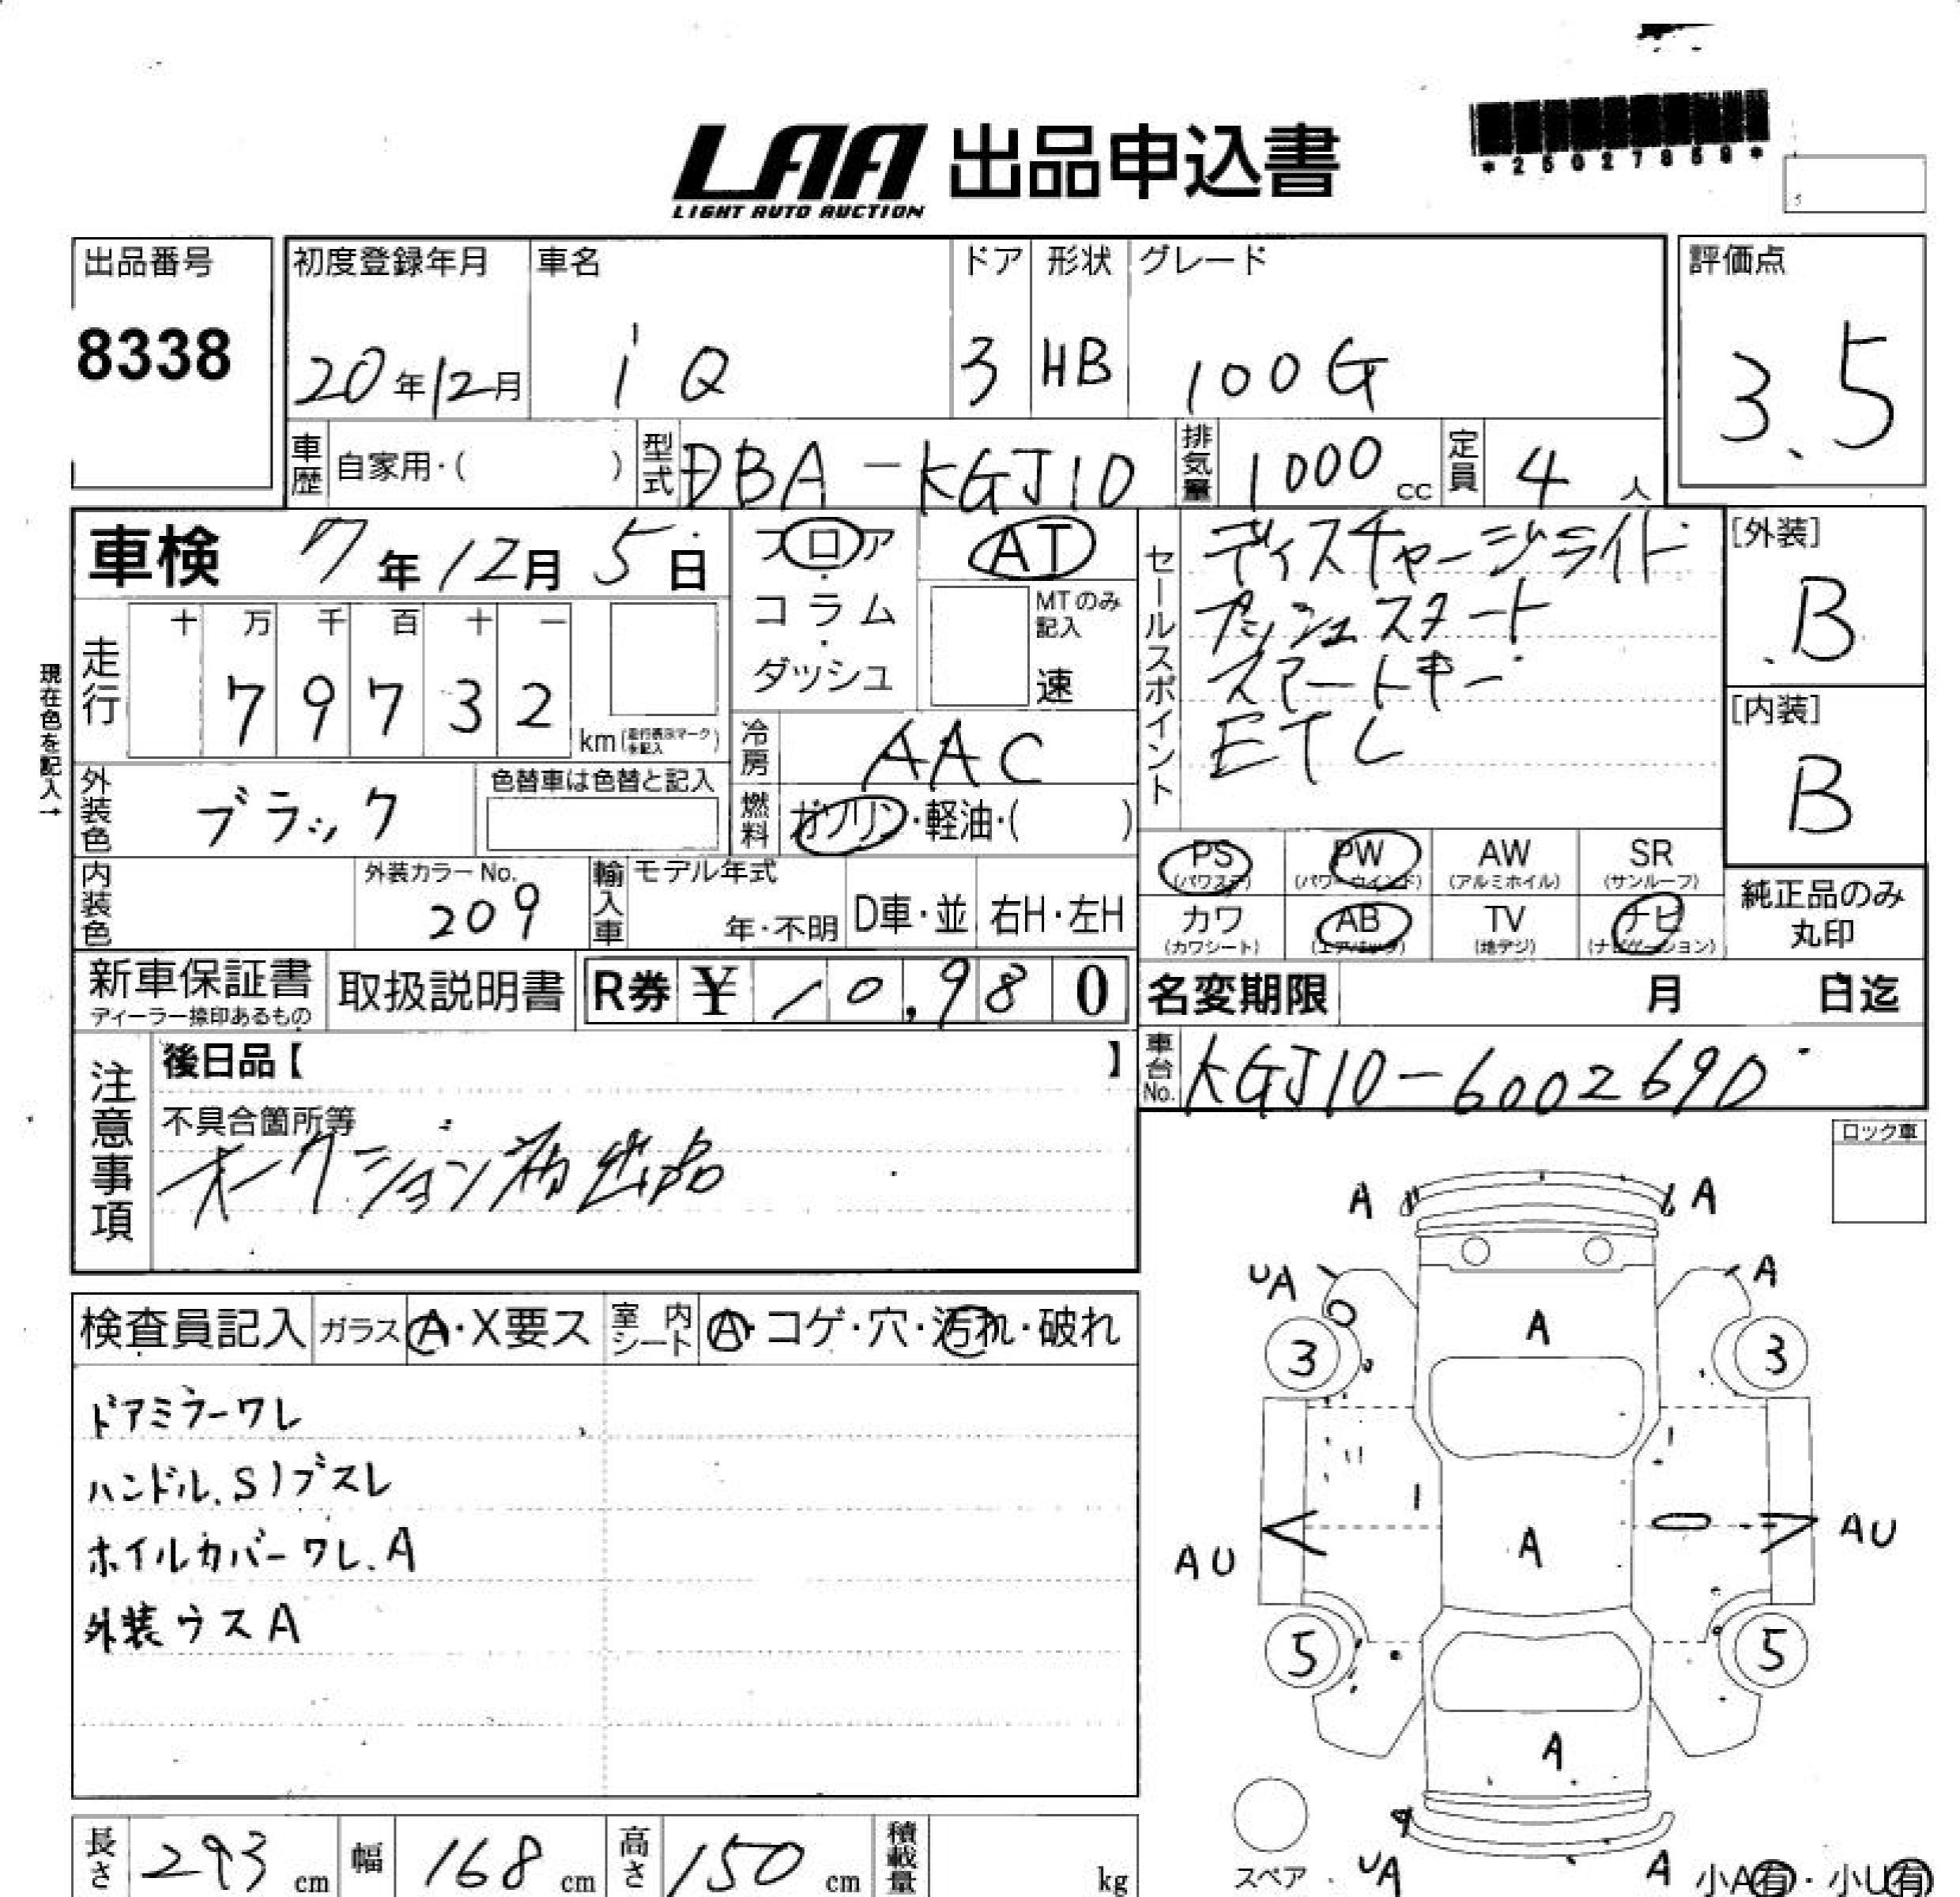 LAA 出品申込書
LIGHT AUTO AUCTION
出品番号
8338
初度登録年月
20年12月
車名
iQ
ドア
3
形状
HB
グレード
100G
評価点
3.5
車歴 自家用・( )
型式 DBA-KGJ10
排気量 1000cc
定員 4人
車検 7年12月5日
現在色を記入→
走行
十 万 千 百 十 一
7 9 7 3 2
km
外装色 ブラック
色替車は色替と記入
内装色
外装カラーNo.
209
フロア・コラム・ダッシュ
AT
MTのみ記入
速
冷房 AAC
燃料 ガソリン・軽油・( )
輸入車
モデル年式
年・不明
D車・並
右H・左H
セールスポイント
ディスチャージライト
プッシュスタート
スマートキー
ETC
[外装]
B
[内装]
B
PS (パワステ)
PW (パワーウインド)
AW (アルミホイル)
SR (サンルーフ)
カワ (カワシート)
AB (エアバック)
TV (地デジ)
ナビ (ナビゲーション)
純正品のみ
丸印
新車保証書
ディーラー捺印あるもの
取扱説明書
R券 ¥ 10,980
名変期限 月 日迄
車台No. KGJ10-6002690
注意事項
後日品【 】
不具合箇所等
オークション初出品
ロック車
検査員記入
ガラス A・X要ス
室内シート A・コゲ・穴・汚れ・破れ
ドアミラーワレ
ハンドル.S)ブスレ
ホイルカバーワレ.A
外装ウスA
A A
UA A
A
3 3
AU A AU
5 5
A
スペア
UA A
小A有・小U有
長さ 293cm
幅 168cm
高さ 150cm
積載量 kg